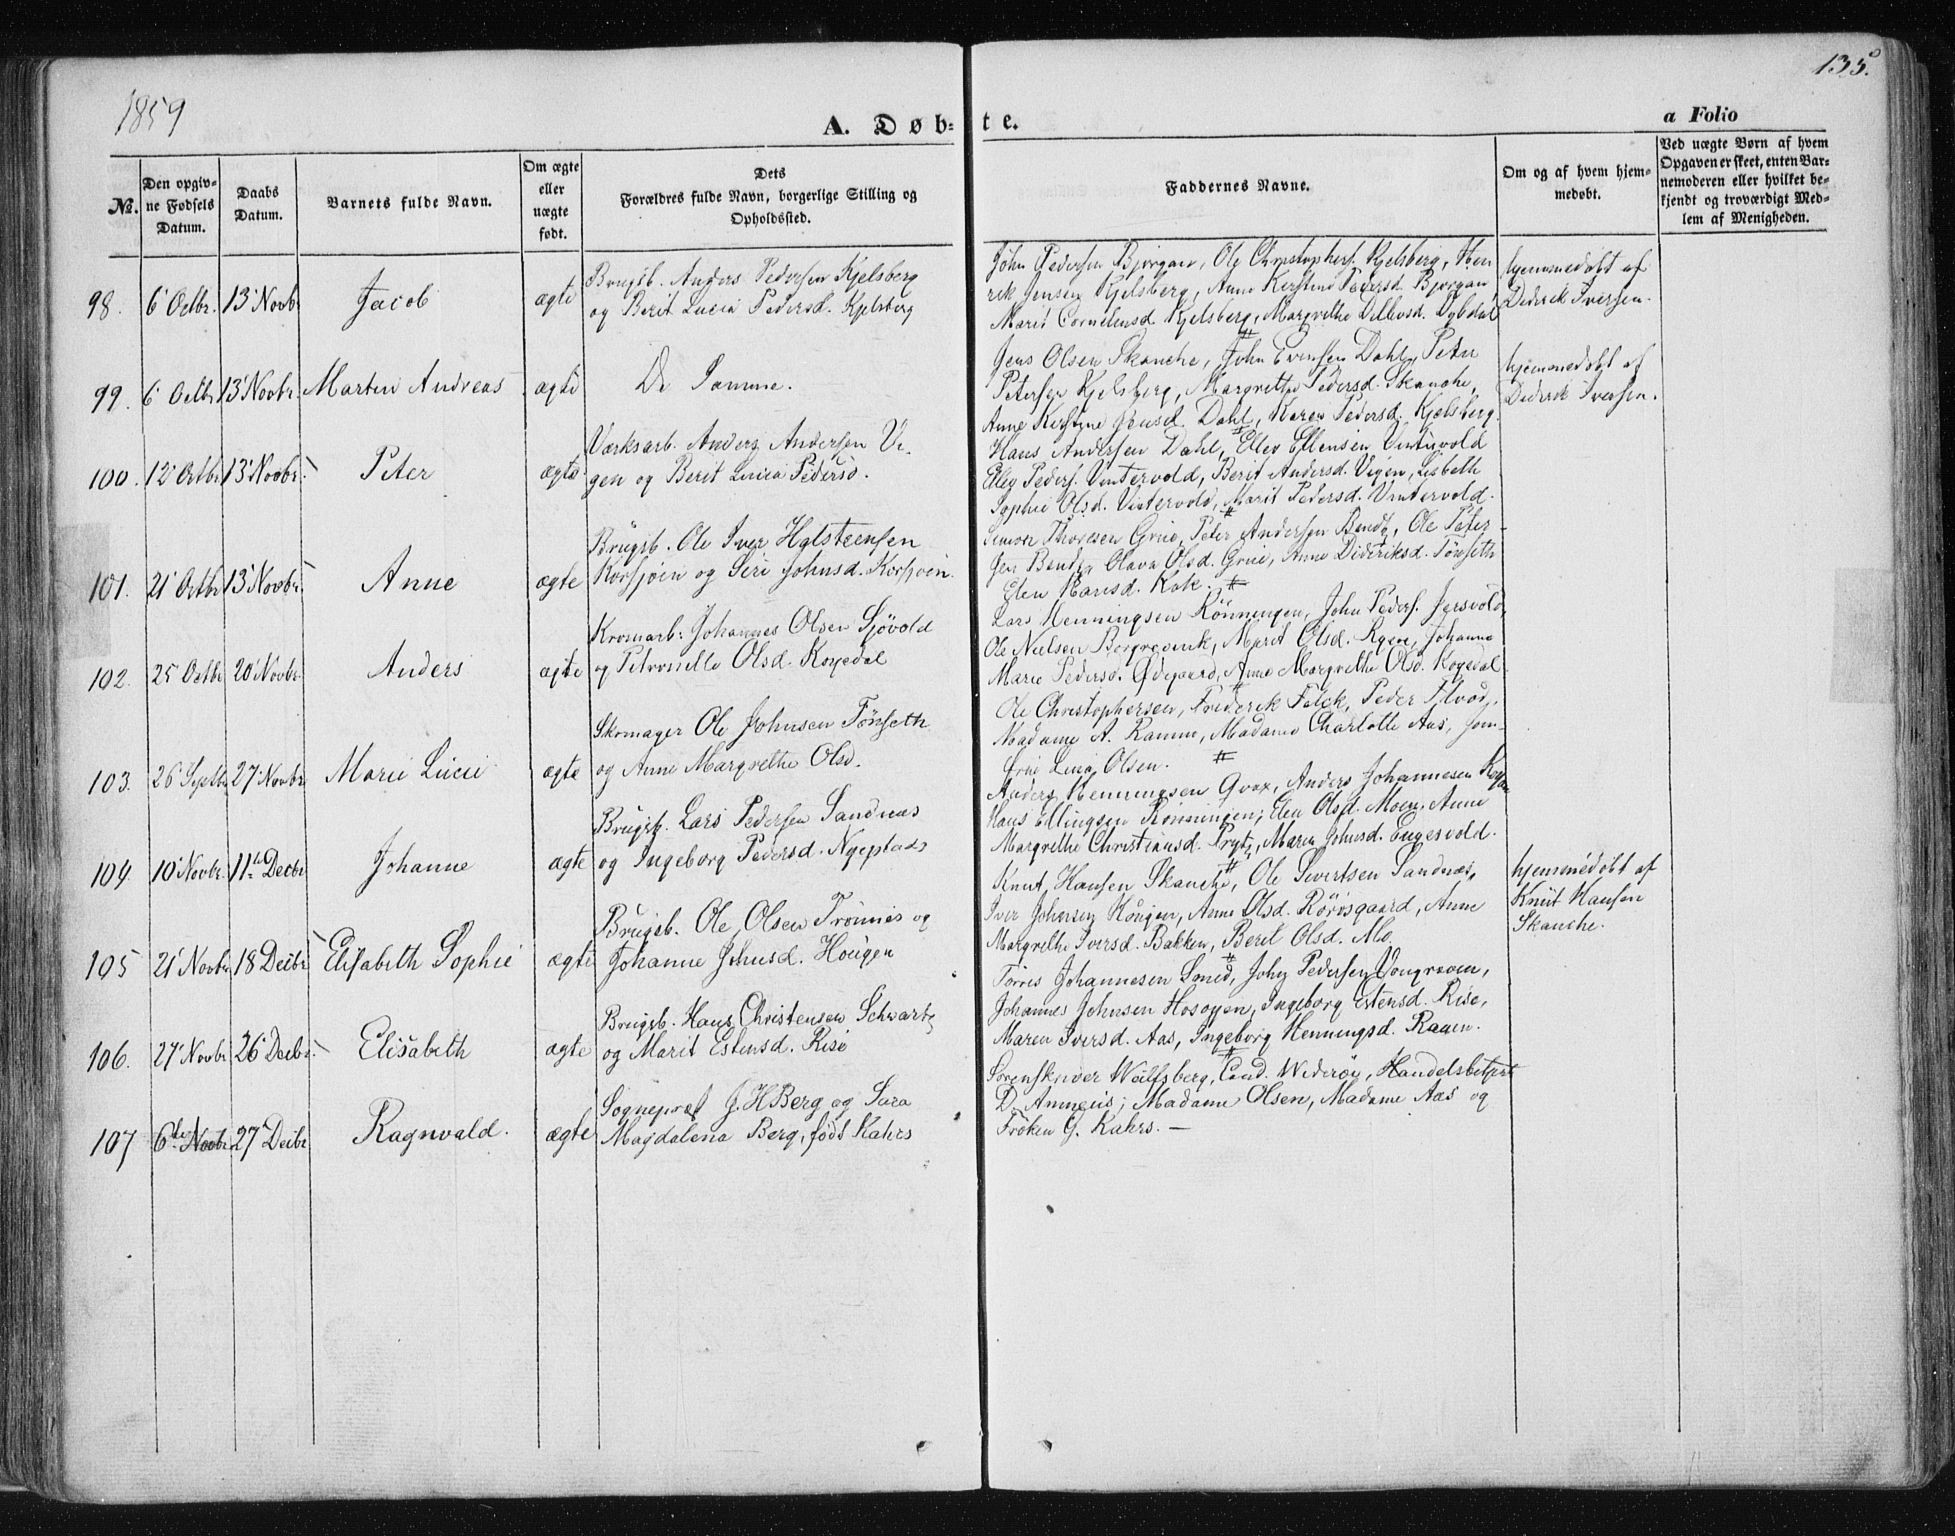 1859
135.
A. Døb=
te.
a Folio
No.
Den opgiv=
ne Fødsels
Datum.
Daabs
Datum.
Barnets fulde Navn.
Om ægte
eller
uægte
født.
Dets
Forældres fulde Navn, borgerlige Stilling og
Opholdssted.
Faddernes Navne.
Om og af hvem hjem=
medøbt.
Ved uægte Børn af hvem
Opgaven er skeet, enten Bar=
nemoderen eller hvilket be=
kjendt og troværdigt Med=
lem af Menigheden.
98. 6 Octbr. 13 Novbr Jacob ægte
Brugsb. Anders Pedersen Kjelsberg
og Berit Lucia Pedersd. Kjelsberg
John Pedersen Bjørgan, Ole Christophers. Kjelsberg, Hen
rik Jensen Kjelsberg, Anne Kirstine Pedersd. Bjørgan
Marit Corneliusd. Kjelsberg, Margrethe Ditlevsd. Dybdal
hjemmedøbt af
Diderik Iversen.
99. 6 Octbr 13 Novbr. Martin Andreas ægte
De Samme.
Jens Olsen Skanche, John Evensen Dahl, Peter
Petersen Kjelsberg, Margrethe Pedersd. Skanche,
Anne Kirstine Jensd. Dahl, Karen Pedersd. Kjelsberg.
hjemmedøbt af
Diderik Iversen.
100. 12 Octbr 13 Novbr. Peter ægte
Værksarb. Anders Andersen Vi-
gen og Berit Lucia Pedersd.
Hans Andersen Dahl, Ellev Ellensen Vintervold
Elley Peders. Vintervold, Berit Andersd. Vigen, Lisbeth
Sophie Olsd. Vintervold, Marit Pedersd. Vintervold.
101. 21 Octbr 13 Novbr. Anne ægte
Brugsb. Ole Iver Halsteensen
Korssjøen og Siri Johnsd. Korssjøen.
Simon Thoresen Grue, Peter Andersen Bendz, Ole Peter-
sen Bendz, Olava Olsd. Grue, Anne Dideriksd. Tønseth
Elen Hansd. Kok.
102. 25 Octbr 20 Novbr. Anders ægte
Kromarb: Johannes Olsen Sjøvold
og Petronelle Olsd. Koyedal
Lars Henningsen Rønningen, John Peders. Jersvold,
Ole Nielsen Borgrevink, Marit Olsd. Ryen, Johanne
Marie Pedersd. Ødegaard, Anne Margrethe Olsd. Kogedal.
103. 26 Septbr 27 Novbr Marie Lucie ægte
Skomager Ole Johnsen Tønseth
og Anne Margrethe Olsd.
Ole Christophersen, Friderik Falck, Peder Floor,
Madame A. Ramm, Madame Charlotte Aas, Jom-
frue Lina Olsen.
104. 10 Novbr. 11te Decbr Johanne ægte
Brugsb. Lars Pedersen Sandnæs
og Ingeborg Pedersd. Nyeplads
Anders Henningsen Qvox, Anders Johannesen
Hans Ellingsen Rønningen, Elen Olsd. Moen, Anne
Margrethe Christiansd. Prytz, Maren Johnsd. Engesvold.
105 21 Novbr 18 Decbr Elisabeth Sophie ægte
Brugsb. Ole Olsen Trønnes og
Johanne Johnsd. Hougen
Knut Hansen Skanche, Ole Sivertsen Sandnæs,
Iver Johnsen Hougen, Anne Olsd. Rørosgaard, Anne
Margrethe Iversd. Bakken, Berit Olsd. Mo.
hjemmedøbt af
Knut Hansen
Skanche.
106. 27 Novbr 26 Decbr. Elisabeth ægte
Brugsb. Hans Christensen Schwartz
og Marit Estensd. Rise
Tørres Johannesen Smed, John Pedersen Vongraven,
Johannes Johnsen Hosøyen, Ingeborg Estensd. Rise,
Maren Iversd. Aas, Ingeborg Henningsd. Raaen.
107 6te Novbr 27 Decbr Ragnvald. ægte
Sognepræst J. H Berg og Sara
Magdalena Berg, født Kahrs
Sorenskriver Wulfsberg, Cand. Widerøe, Handelsbetjent
D. Anneus; Madame Olsen, Madame Aas og
Frøken G. Kahrs. —